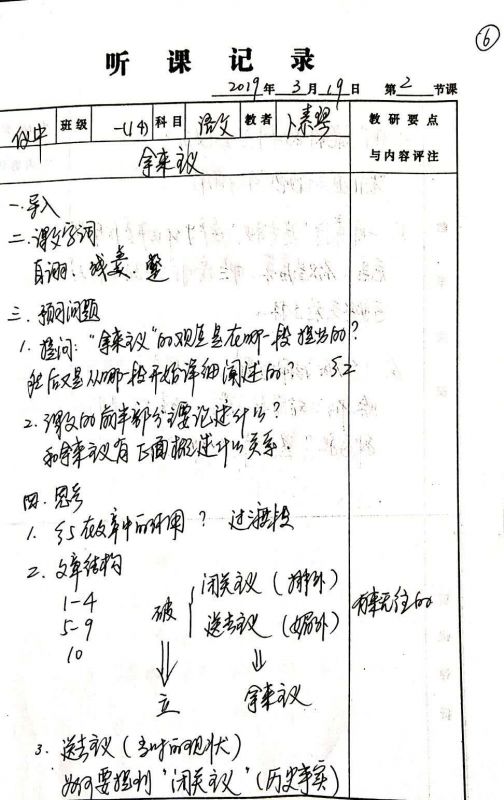 ⑥
听课记录
2019年3月19日 第2节课
班级 一(14) 科目 语文 教者 教研要点
与内容评注
拿来主义
一.导入
二.课文字词
自诩 残羹
三.预习问题
1.提问:“拿来主义”的观点是在哪一段提出的?
然后又是从哪一段开始详细阐述的? §2
2.课文的前半部分主要论述什么?
和拿来主义有 正面 述什么关系
四.思考
1. §5在文章中的作用? 过渡段
2.文章结构
1-4 破 闭关主义(排外)
5-9 送去主义(媚外) 有来无往的
10
立 拿来主义
3.送去主义(当时的现状)
如何要提到“闭关主义”(历史事实)